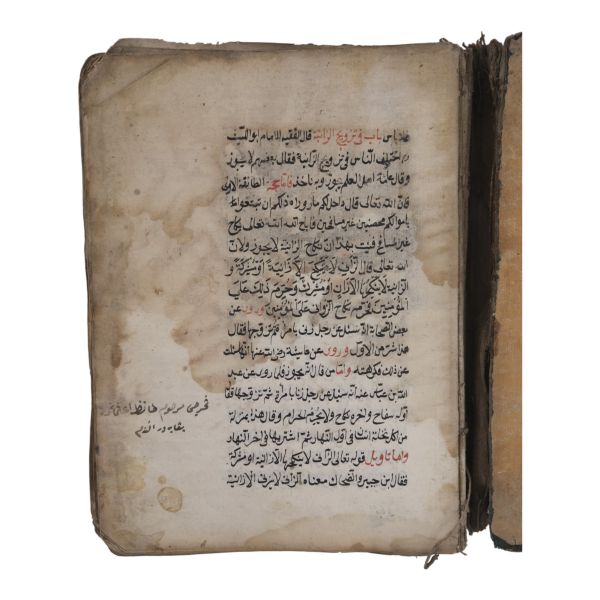 فلا باس باب في تزويج الزانية قال الفقيه الامام ابو الليث
اختلف الناس في تزويج الزانية فقال بعضهم لا يجوز
وقال عامة اهل العلم يجوز وبه ناخذ فاما حجة الطائفة الاولى
فان الله تعالى قال واحل لكم ما وراء ذلكم ان تبتغوا
باموالكم محصنين غير مسافحين فاباح الله تعالى نكاح
غير مسافح فثبت بهذا ان نكاح الزانية لا يجوز ولان
الله تعالى قال الزاني لا ينكح الا زانية او مشركة و
الزانية لا ينكحها الا زان او مشرك وحرم ذلك على
المؤمنين نكاح الزواني على المؤمنين وروى عن
بعض الصحابة انه سئل عن رجل زنى بامراة ثم تزوجها فقال
هذا شر من الاول وروى عن عايشة رضى الله عنها انها سئلت
عن ذلك فكرهته واما من قال بانه يجوز فلما روى عن عبد
الله بن عباس انه سئل عن رجل زنا بامراة ثم تزوجها فقال
اوله سفاح واخره نكاح ولا يحرم الحرام وقال هذا بمنزلة
من اكل نخلة انسان في اول النهار ثم اشتريها في اخر النهار
واما تاويل قوله تعالى الزاني لا ينكح الا زانية او مشركة
فقال ابن جبير والضحاك معناه الزاني لا يزني الا زانية